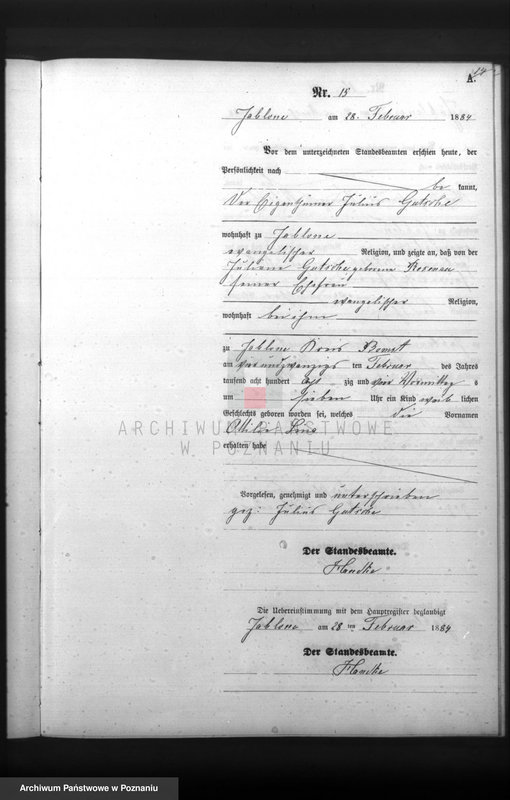 A.
14
Nr. 15
Jablone am 28. Februar 1884
Vor dem unterzeichneten Standesbeamten erschien heute, der
Persönlichkeit nach
be kannt,
Der Eigenthümer Julius Gutsche
wohnhaft zu Jablone
evangelischer Religion, und zeigte an, daß von der
Juliane Gutsche geborene Rosenau
seiner Ehefrau
evangelischer Religion,
wohnhaft bei ihm
zu Jablone Kreis Bomst
am vierundzwanzigs ten Februar des Jahres
tausend acht hundert acht zig und vier Vormittag s
um sieben Uhr ein Kind weib lichen
Geschlechts geboren worden sei, welches die Vornamen
Ottilie
erhalten habe
Vorgelesen, genehmigt und unterschrieben
gez: Julius Gutsche
Der Standesbeamte.
Die Uebereinstimmung mit dem Hauptregister beglaubigt
Jablone am 28 ten Februar 1884
Der Standesbeamte.
ARCHIWUM PAŃSTWOWE
W POZNANIU
Archiwum Państwowe w Poznaniu